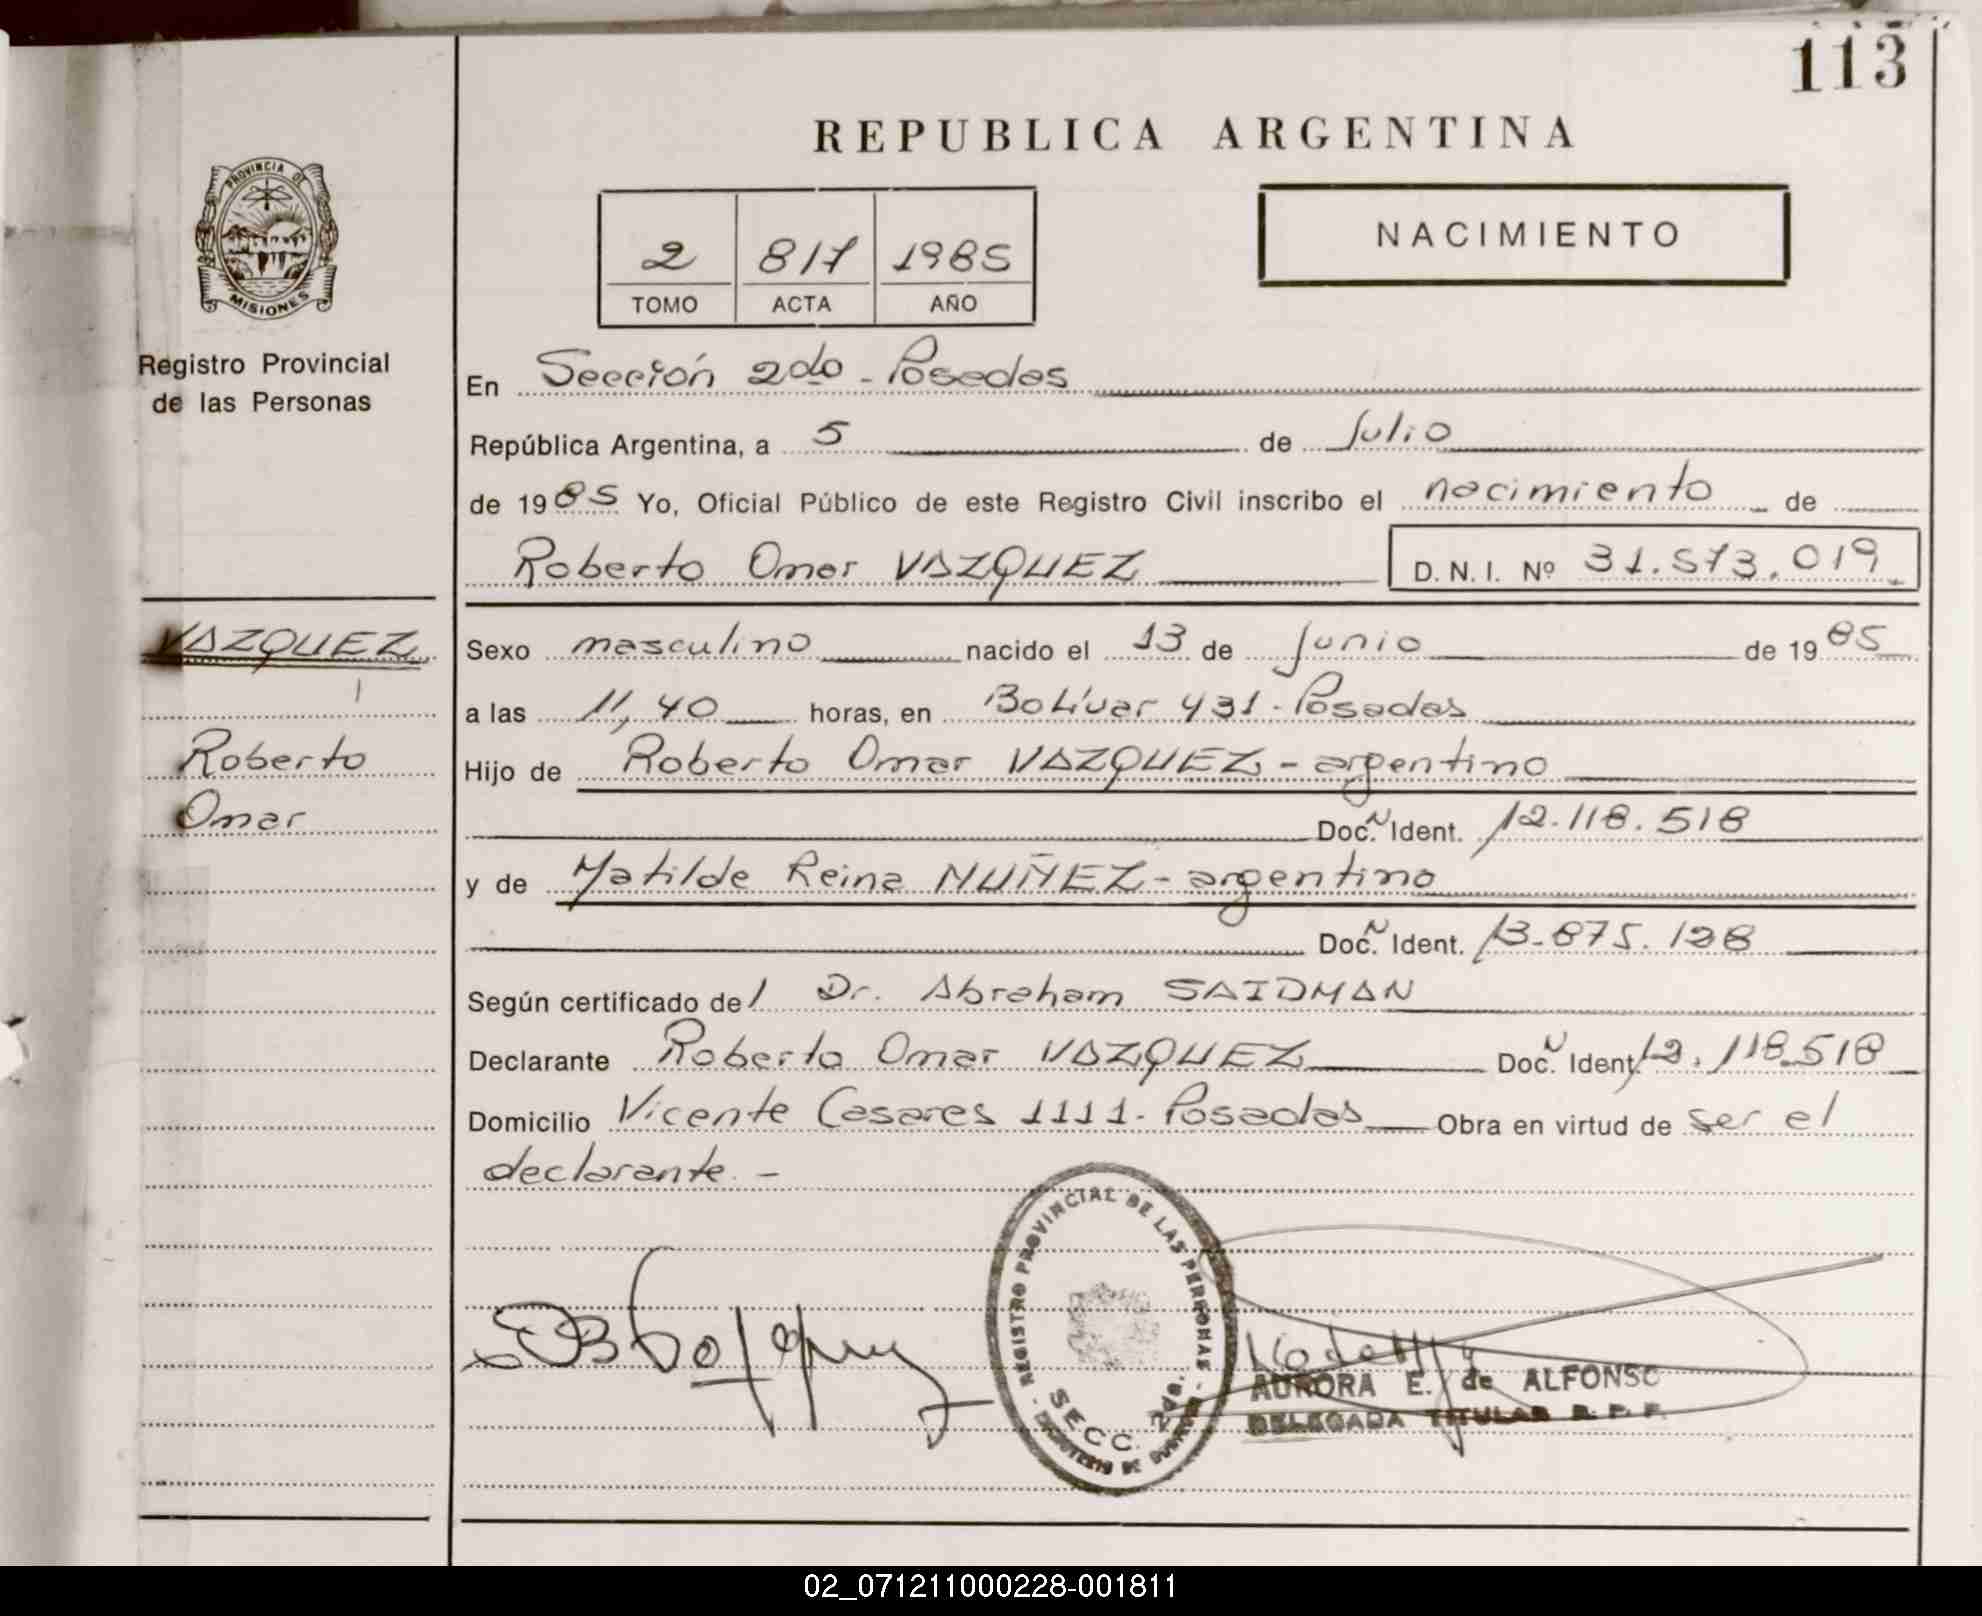 113
REPUBLICA ARGENTINA
PROVINCIA DE
MISIONES
Registro Provincial
de las Personas
2 817 1985
TOMO ACTA AÑO
NACIMIENTO
En Sección 2da - Posadas
República Argentina, a 5 de Julio
de 1985 Yo, Oficial Público de este Registro Civil inscribo el nacimiento de
Roberto Omar VAZQUEZ D. N. I. Nº 31.573.019
VAZQUEZ
Roberto
Omar
Sexo masculino nacido el 13 de Junio de 1985
a las 11,40 horas, en Bolívar 431 - Posadas
Hijo de Roberto Omar VAZQUEZ - argentino
Doc. N Ident. 12.118.518
y de Matilde Reina NUÑEZ - argentina
Doc. N Ident. 13.875.128
Según certificado del Dr. Abraham SAIDMAN
Declarante Roberto Omar VAZQUEZ Doc. N Ident. 12.118.518
Domicilio Vicente Casares 1111 - Posadas Obra en virtud de ser el
declarante. -
REGISTRO PROVINCIAL DE LAS PERSONAS
SECC. 2da.
AURORA E. de ALFONSO
DELEGADA TITULAR R. P. P.
02_071211000228-001811